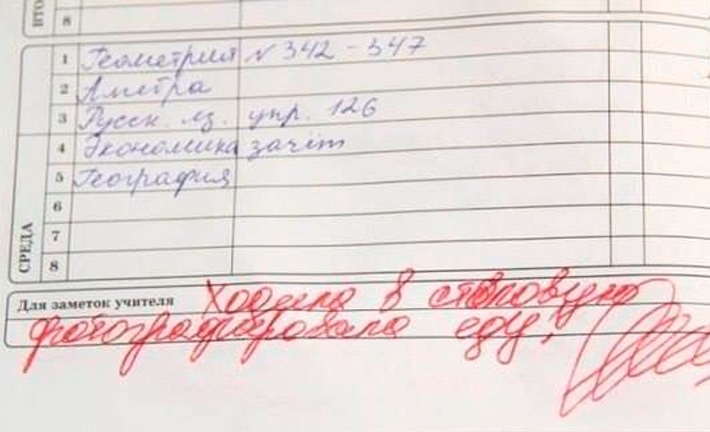 ВТО
8
СРЕДА
1 Геометрия № 342 - 347
2 Алгебра
3 Русск. яз. упр. 126
4 Экономика зачёт
5 География
6
7
8
Для заметок учителя Ходила в столовую
фотографировала еду!